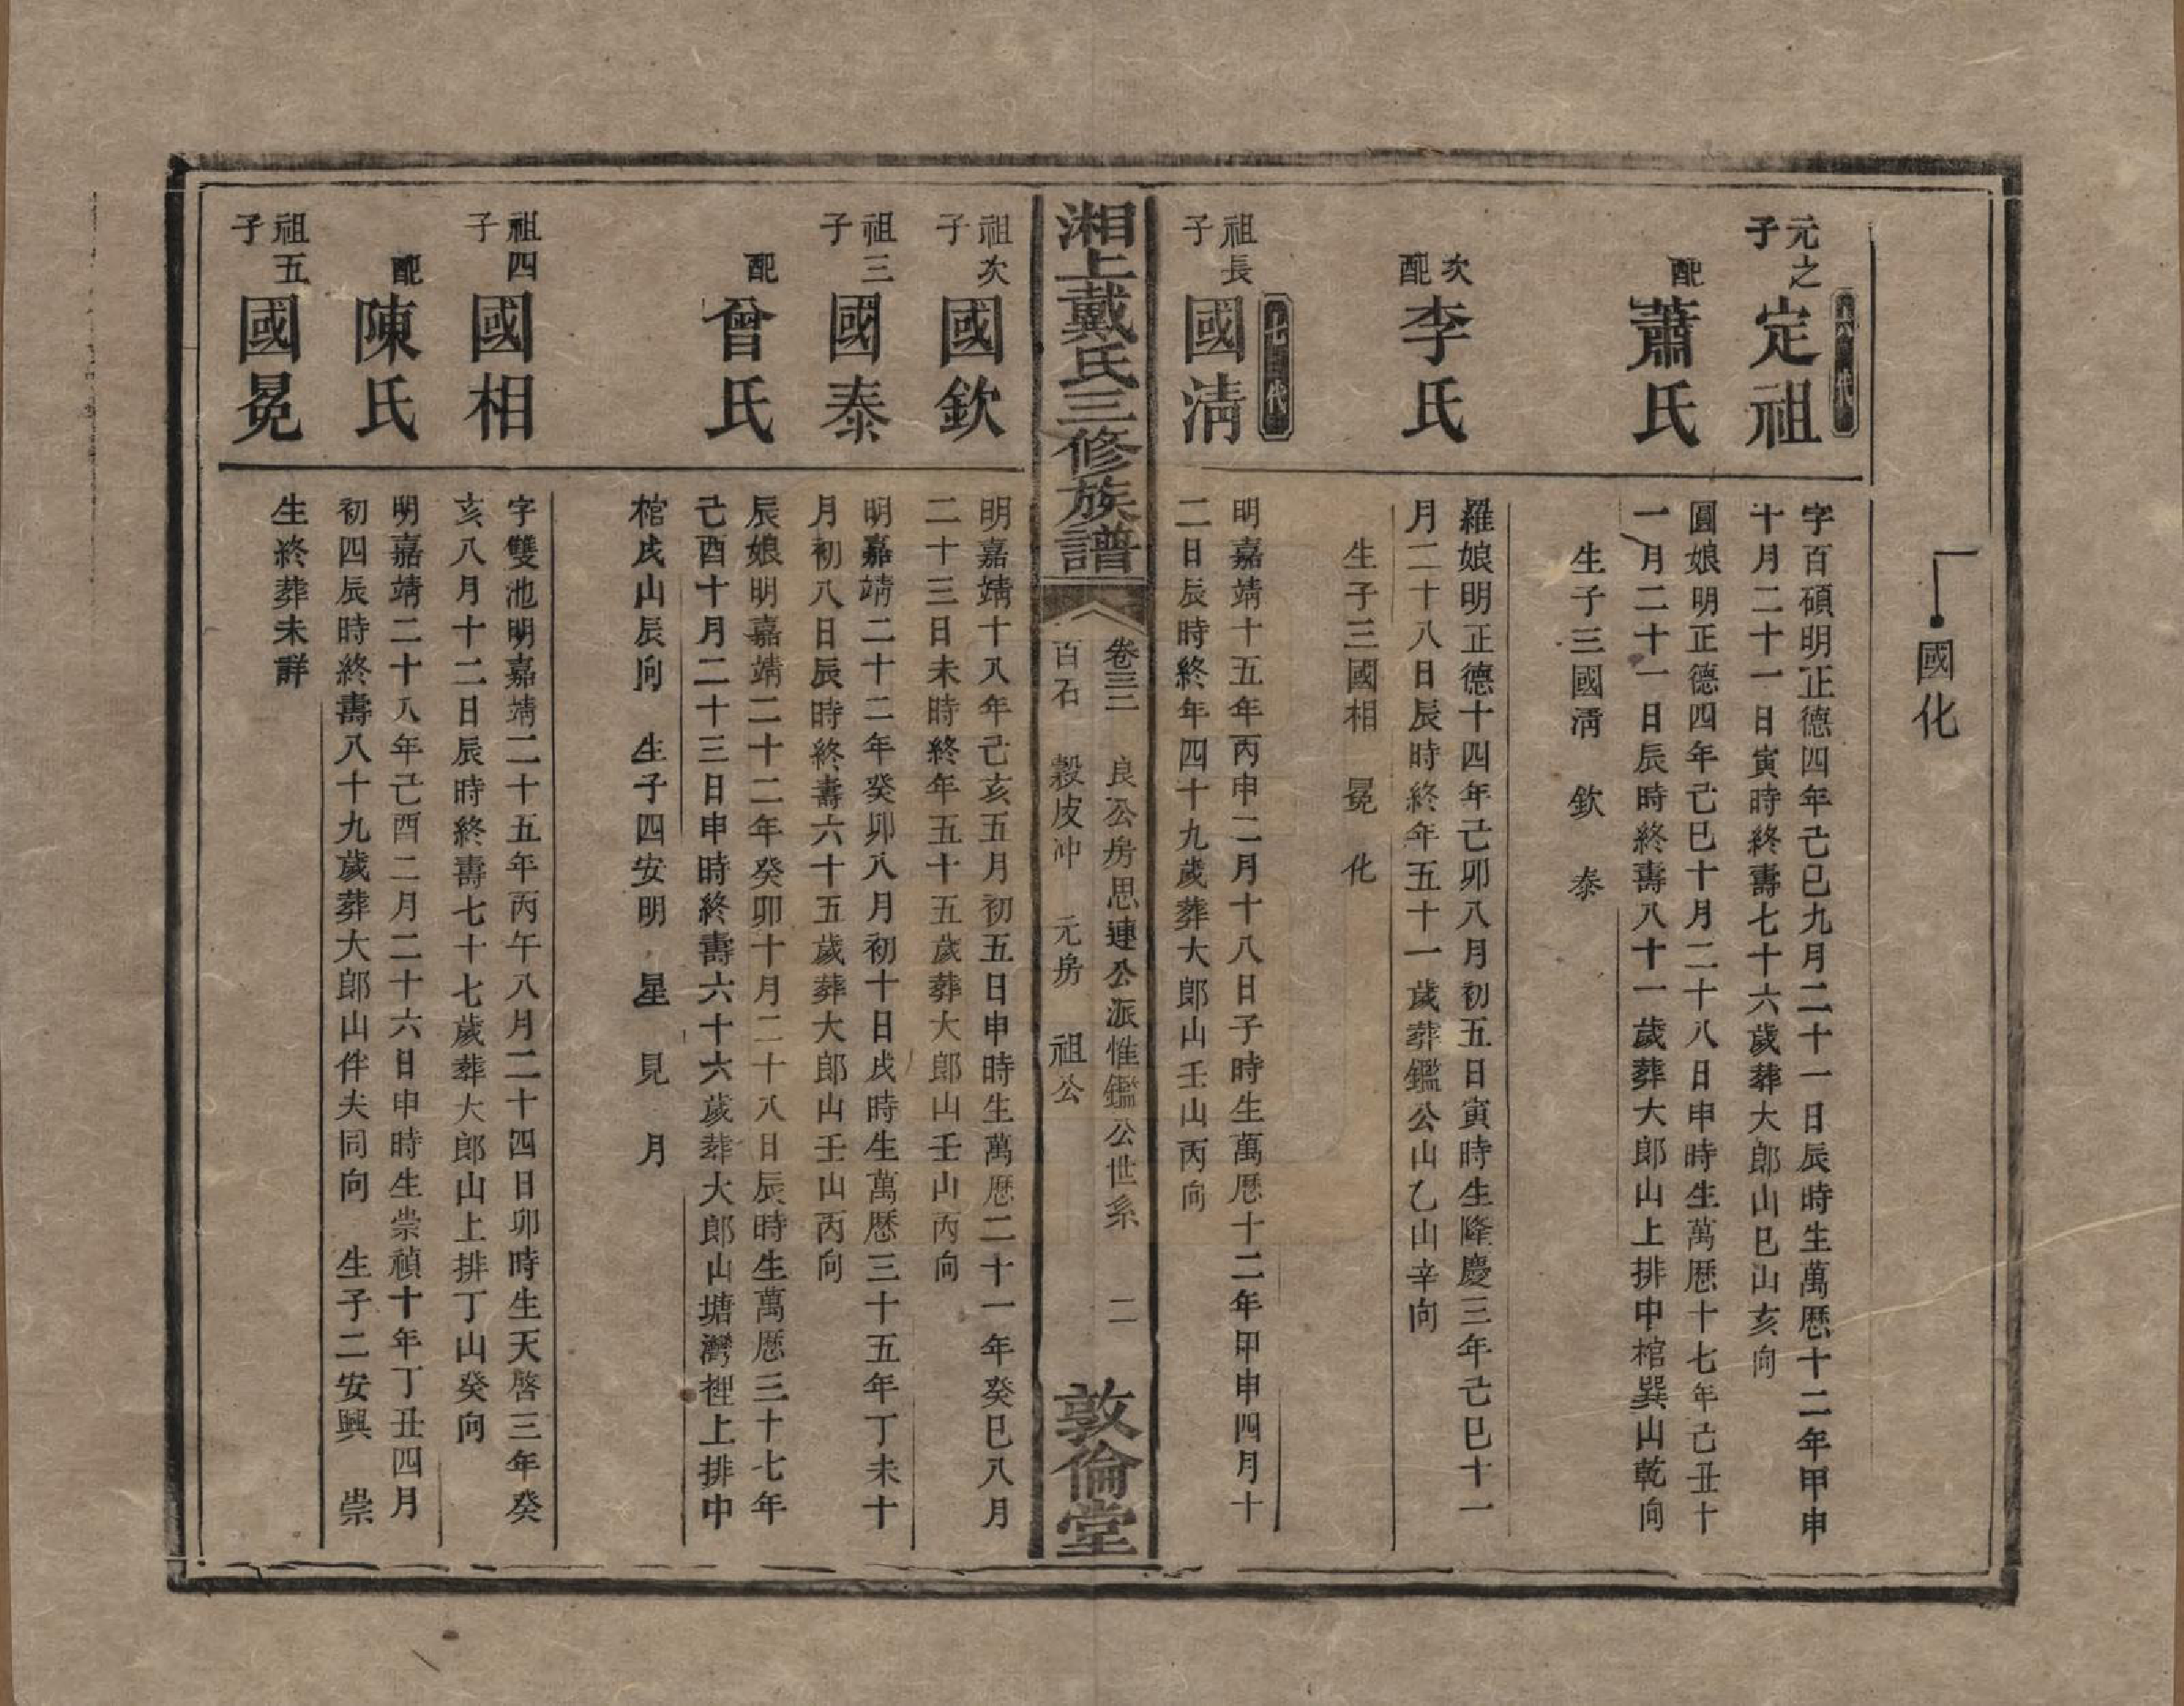 國化
六代
元之子
定祖
字百碩明正德四年己巳九月二十一日辰時生萬歷十二年甲申
十月二十一日寅時終壽七十六歲葬大郎山巳山亥向
配
蕭氏
圓娘明正德四年己巳十月二十八日申時生萬歷十七年己丑十
一月二十一日辰時終壽八十一歲葬大郎山上排中棺巽山乾向
生子三國清 欽 泰
次配
李氏
羅娘明正德十四年己卯八月初五日寅時生隆慶三年己巳十一
月二十八日辰時終年五十一歲葬鑑公山乙山辛向
生子三國相 冕 化
七代
祖長子
國清
明嘉靖十五年丙申二月十八日子時生萬歷十二年甲申四月十
二日辰時終年四十九歲葬大郎山壬山丙向
湘上戴氏三修族譜
卷三 良公房思連公派惟鑑公世系 二
百石 榖皮冲 元房 祖公
敦倫堂
祖次子
國欽
明嘉靖十八年己亥五月初五日申時生萬歷二十一年癸巳八月
二十三日未時終年五十五歲葬大郎山壬山丙向
祖三子
國泰
明嘉靖二十二年癸卯八月初十日戌時生萬歷三十五年丁未十
月初八日辰時終壽六十五歲葬大郎山壬山丙向
配
曾氏
辰娘明嘉靖二十二年癸卯十月二十八日辰時生萬歷三十七年
己酉十月二十三日申時終壽六十六歲葬大郎山塘灣裡上排中
棺戌山辰向 生子四安明 星 見 月
祖四子
國相
字雙池明嘉靖二十五年丙午八月二十四日卯時生天啓三年癸
亥八月十二日辰時終壽七十七歲葬大郎山上排丁山癸向
配
陳氏
明嘉靖二十八年己酉二月二十六日申時生崇禎十年丁丑四月
初四辰時終壽八十九歲葬大郎山伴夫同向 生子二安興 崇
祖五子
國冕
生終葬未詳